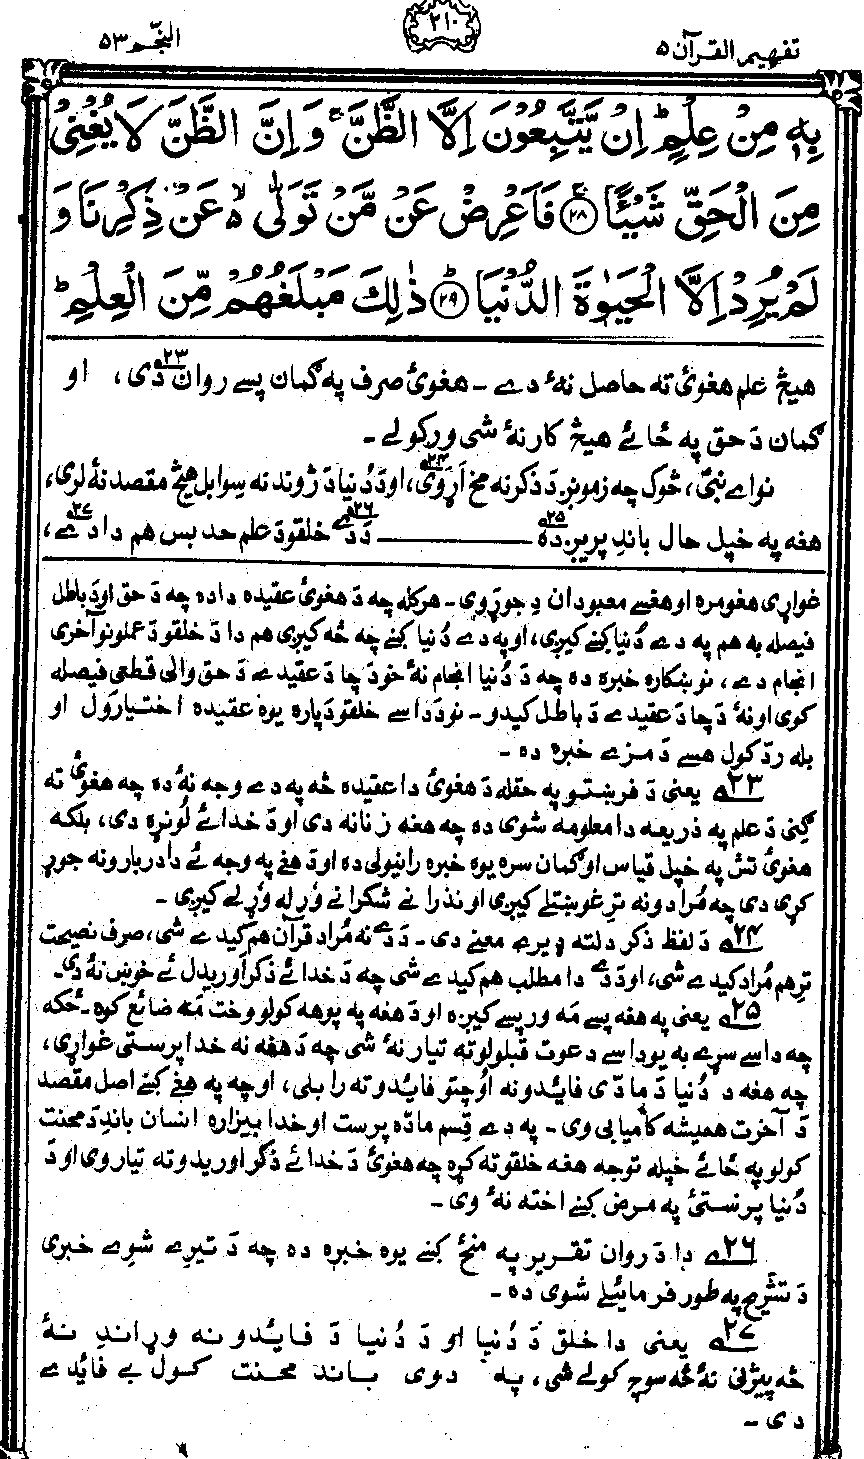 تفهیم القرآن ۵
۲۱۰
النجم ۵۳
بِهٖ مِنْ عِلْمٍ ؕ اِنْ يَّتَّبِعُوْنَ اِلَّا الظَّنَّ ۚ وَ اِنَّ الظَّنَّ لَا يُغْنِيْ
مِنَ الْحَقِّ شَيْـًٔا ۚ۝۲۸ فَاَعْرِضْ عَنْ مَّنْ تَوَلّٰى ۙ۬ عَنْ ذِكْرِنَا وَ
لَمْ يُرِدْ اِلَّا الْحَيٰوةَ الدُّنْيَا ؕ۝۲۹ ذٰلِكَ مَبْلَغُهُمْ مِّنَ الْعِلْمِ ؕ
هیڅ علم هغوئ ته حاصل نهٔ دے ـ هغوئ صرف په ګمان پسے روان دی۲۳، او
ګمان دَ حق په ځائے هیڅ کار نهٔ شی ورکولے ـ
نو اے نبیؐ، څوک چه زمونږ دَ ذکر نه مخ اَړَوی۲۴، او دَ دُنیا دَ ژوند نه سِوا بل هیڅ مقصد نهٔ لری،
هغه په خپل حال باندِ پریږده۲۵ ــــــــ دَ دے۲۶ خلقو دَ علم حد بس هم دا دے۲۷،
غواړی هغومره او هغسے معبودان دِ جوړوی ـ هرکله چه دَ هغوئ عقیده دا ده چه دَ حق او دَ باطل
فیصله به هم په دے دُنیا کښے کیږی، او په دے دُنیا کښے چه څه کیږی هم دا دَ خلقو دَ عملونو آخری
انجام دے، نو ښکاره خبره ده چه دَ دُنیا انجام نهٔ خو دَ چا دَ عقیدے دَ حق والی قطعی فیصله
کوی او نهٔ دَ چا دَ عقیدے دَ باطل کیدو ـ نو دَ داسے خلقو دَپاره یوه عقیده اختیارَول او
بله ردّ کول هسے دَ مزے خبره ده ـ
۲۳ یعنی دَ فرښتو په حقله دَ هغوئ دا عقیده څه په دے وجه نهٔ ده چه هغوئ ته
ګِنی دَ علم په ذریعه دا معلومه شوی ده چه هغه زنانه دی او دَ خدائے لُونړه دی، بلکه
هغوئ تش په خپل قیاس او ګمان سره یوه خبره رانیولی ده او دَ هغے په وجه ئے دا دربارونه جوړ
کړی دی چه مُرادونه ترِ غوښتلے کیږی او نذرانے شکرانے وَرله وَړلے کیږی ـ
۲۴ دَ لفظ ذکر دلته ډیرے معنے دی ـ دَ دے نه مُراد قرآن هم کیدے شی، صرف نصیحت
ترِ هم مُراد کیدے شی، او دَ دے دا مطلب هم کیدے شی چه دَ خدائے ذکر اَوریدل ئے خوښ نهٔ دی ـ
۲۵ یعنی په هغه پسے مَه ورپسے کیږه او دَ هغه په پوهه کولو وخت مَه ضائع کوه ـ ځکه
چه داسے سړے به یو داسے دعوت قبلولو ته تیار نهٔ شی چه دَ هغه نه خدا پرستی غواړی،
چه هغه دَ دُنیا دَ مادّی فایٔدو نه اُوچتو فایٔدو ته را بلی، او چه په هغے کښے اصل مقصد
دَ آخرت همیشه کامیابی وی ـ په دے قِسم مادّه پرست او خدا بیزاره انسان باندِ دَ محنت
کولو په ځائے خپله توجه هغه خلقو ته کړه چه هغوئ دَ خدائے ذکر اوریدو ته تیار وی او دَ
دُنیا پرستئ په مرض کښے اخته نهٔ وی ـ
۲۶ دا دَ روان تقریر په منځ کښے یوه خبره ده چه دَ تیرے شوے خبری
دَ تشریح په طور فرمائیلے شوی ده ـ
۲۷ یعنی دا خلق دَ دُنیا او دَ دُنیا دَ فایٔدو نه وړاندِ نهٔ
څه پیژنی نهٔ څه سوچ کولے شی، په دوی باندِ محنت کول بے فایٔدے
دی ـ